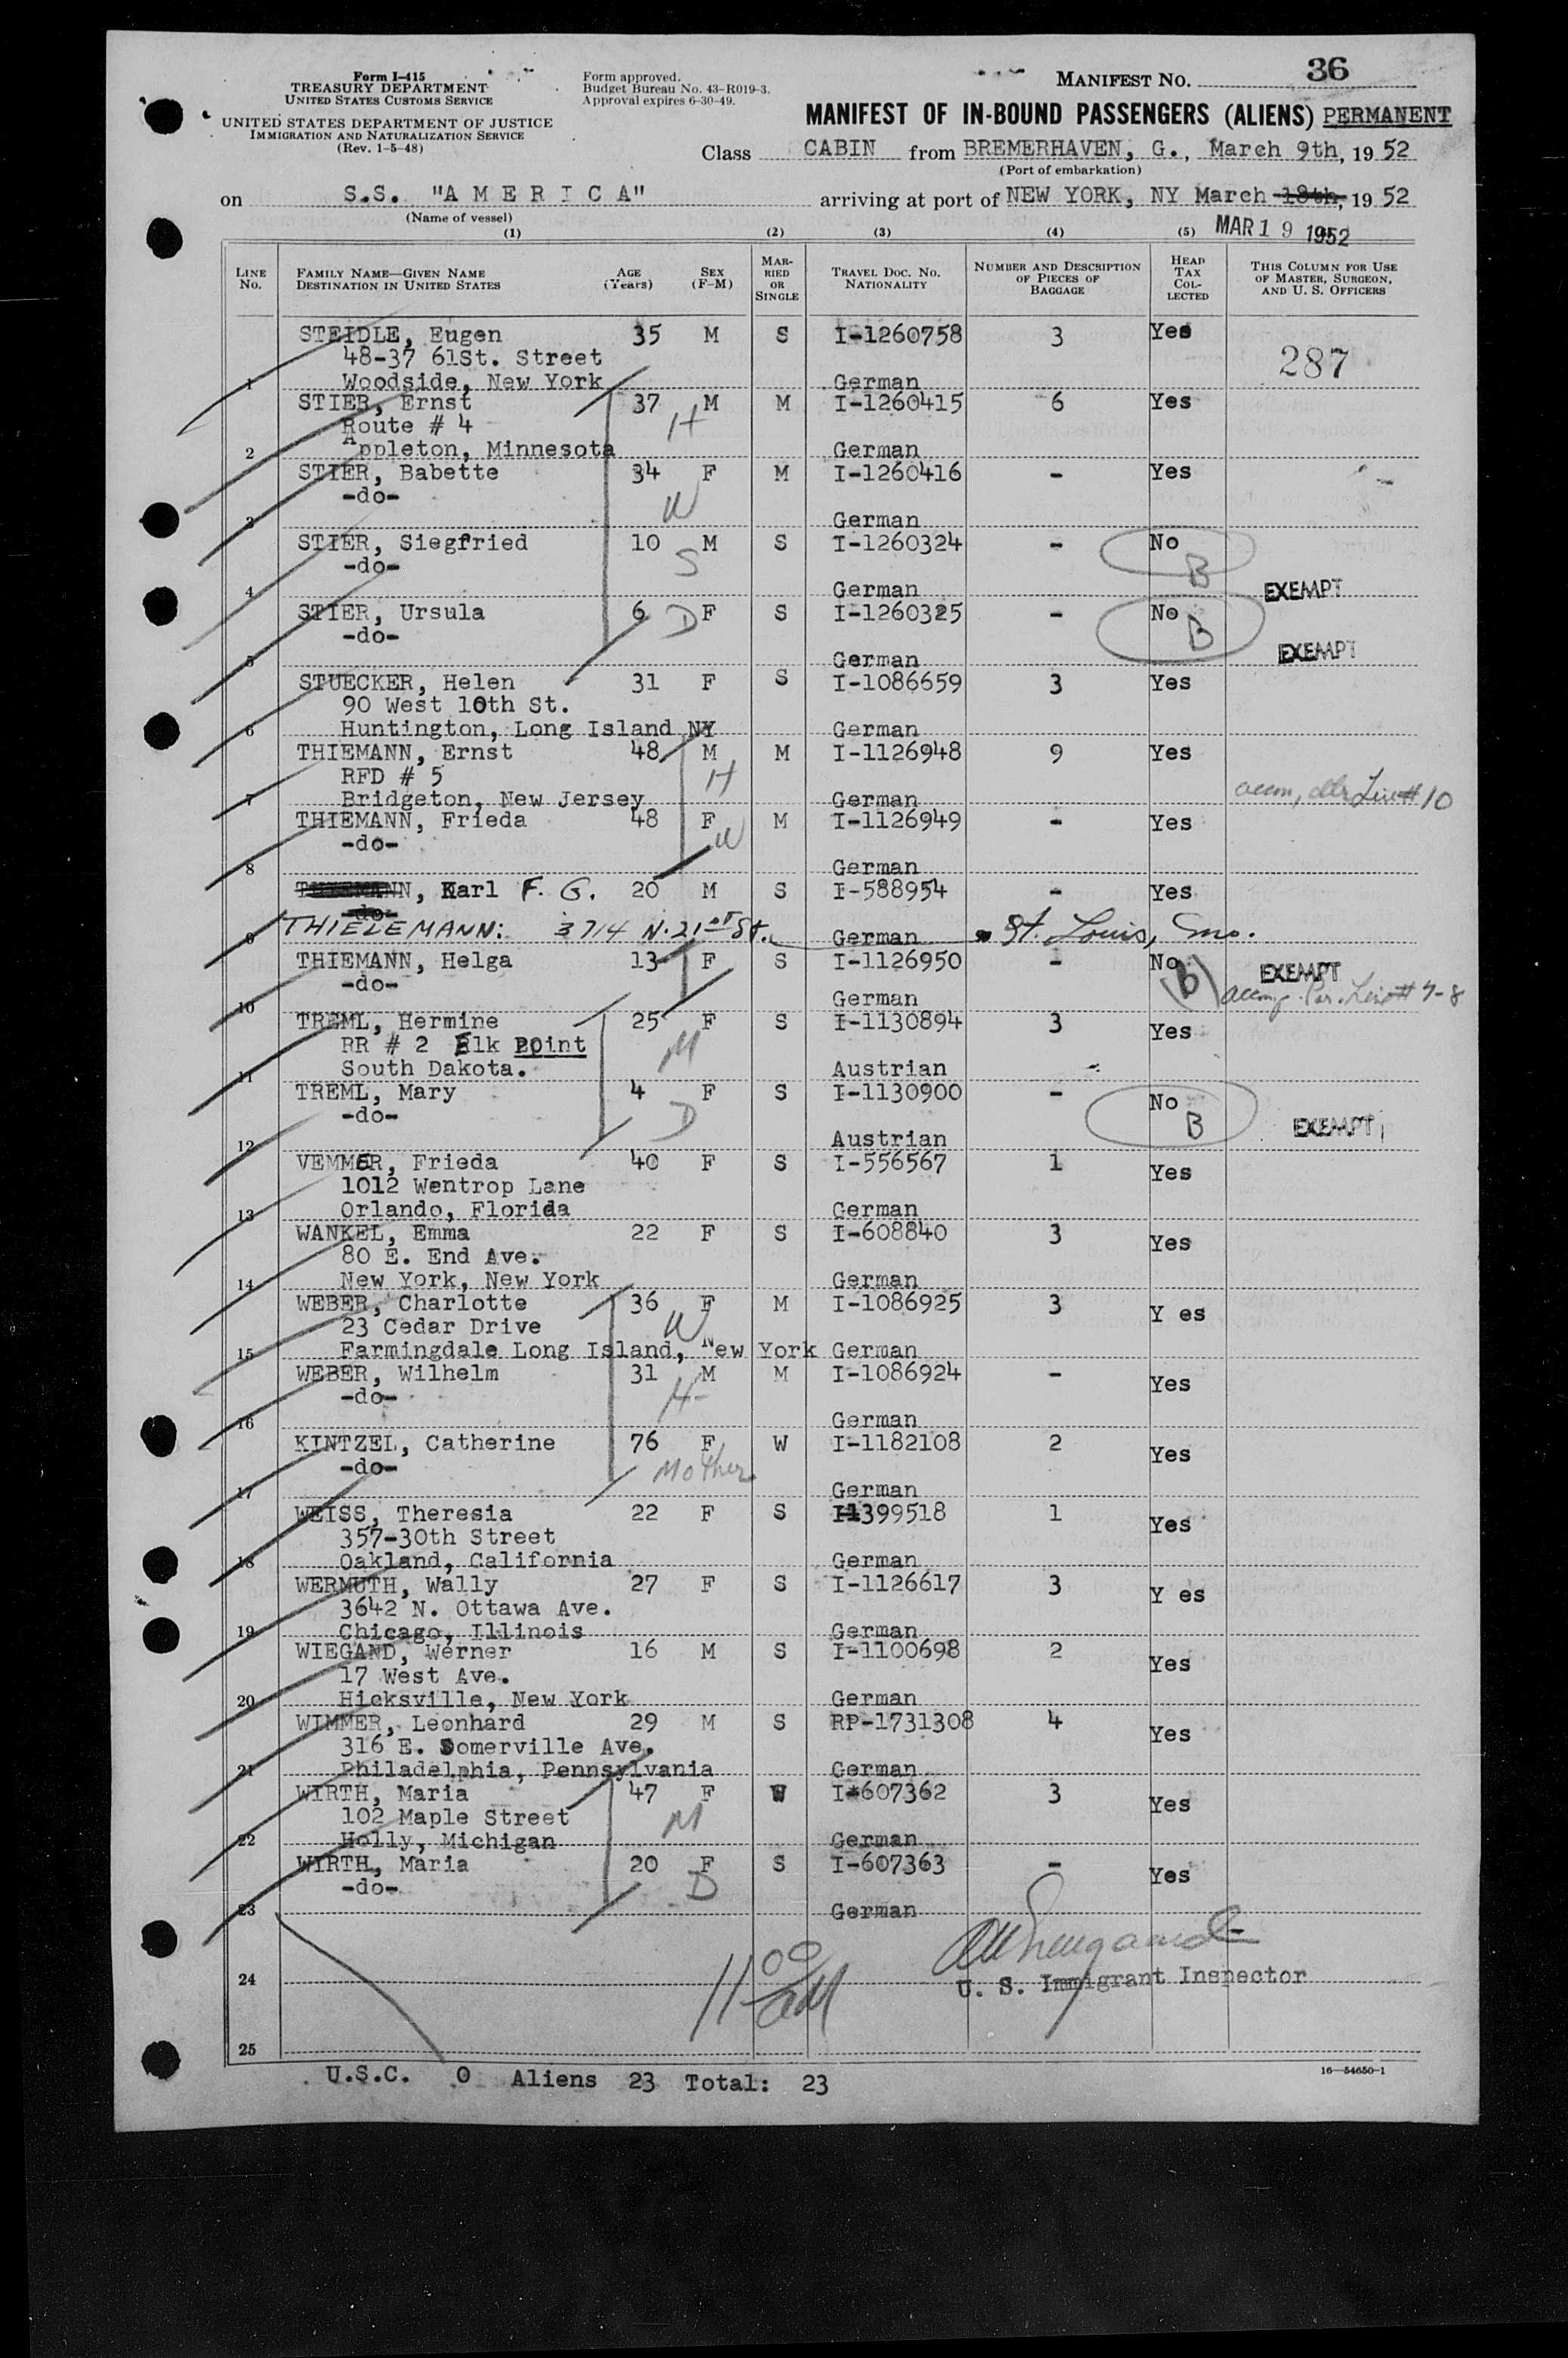 Form I-415
TREASURY DEPARTMENT
UNITED STATES CUSTOMS SERVICE
UNITED STATES DEPARTMENT OF JUSTICE
IMMIGRATION AND NATURALIZATION SERVICE
(Rev. 1-5-48)
Form approved.
Budget Bureau No. 43-R019-3.
Approval expires 6-30-49.
MANIFEST NO. 36
MANIFEST OF IN-BOUND PASSENGERS (ALIENS) PERMANENT
Class CABIN from BREMERHAVEN, G., March 9th, 19 52
(Port of embarkation)
on S.S. "A M E R I C A" arriving at port of NEW YORK, NY March 18th, 19 52
(Name of vessel)
MAR 1 9 1952
(1) (2) (3) (4) (5)
LINE No. FAMILY NAME—GIVEN NAME DESTINATION IN UNITED STATES AGE (Years) SEX (F-M) MARRIED OR SINGLE TRAVEL DOC. NO. NATIONALITY NUMBER AND DESCRIPTION OF PIECES OF BAGGAGE HEAD TAX COLLECTED THIS COLUMN FOR USE OF MASTER, SURGEON, AND U. S. OFFICERS
STEIDLE, Eugen 35 M S I-1260758 3 Yes
48-37 61St. Street 287
1 Woodside, New York German
STIER, Ernst 37 M M I-1260415 6 Yes
Route # 4 H
2 Appleton, Minnesota German
STIER, Babette 34 F M I-1260416 - Yes
-do- W
3 German
STIER, Siegfried 10 M S I-1260324 - No
-do- S B
4 German EXEMPT
STIER, Ursula 6 D F S I-1260325 - No
-do- B
5 German EXEMPT
STUECKER, Helen 31 F S I-1086659 3 Yes
90 West 10th St.
6 Huntington, Long Island NY German
THIEMANN, Ernst 48 M M I-1126948 9 Yes
RFD # 5 H
7 Bridgeton, New Jersey German Line # 10
THIEMANN, Frieda 48 F M I-1126949 - Yes
-do- W
8 German
THIEMANN, Karl F. G. 20 M S I-588954 - Yes
-do-
9 THIELEMANN: 3714 N. 21ST St. German St. Louis, Mo.
THIEMANN, Helga 13 F S I-1126950 - No B EXEMPT
-do- Line # 7-8
10 German
TREML, Hermine 25 F S I-1130894 3 Yes
RR # 2 Elk Point M
11 South Dakota. Austrian
TREML, Mary 4 F S I-1130900 - No
-do- D B EXEMPT
12 Austrian
VEMMER, Frieda 40 F S I-556567 1 Yes
1012 Wentrop Lane
13 Orlando, Florida German
WANKEL, Emma 22 F S I-608840 3 Yes
80 E. End Ave.
14 New York, New York German
WEBER, Charlotte 36 F M I-1086925 3 Y es
23 Cedar Drive W
15 Farmingdale Long Island, New York German
WEBER, Wilhelm 31 M M I-1086924 - Yes
-do- H
16 German
KINTZEL, Catherine 76 F W I-1182108 2 Yes
-do- Mother
17 German
WEISS, Theresia 22 F S I-1399518 1 Yes
357-30th Street
18 Oakland, California German
WERMUTH, Wally 27 F S I-1126617 3 Y es
3642 N. Ottawa Ave.
19 Chicago, Illinois German
WIEGAND, Werner 16 M S I-1100698 2 Yes
17 West Ave.
20 Hicksville, New York German
WIMMER, Leonhard 29 M S RP-1731308 4 Yes
316 E. Somerville Ave.
21 Philadelphia, Pennsylvania German
WIRTH, Maria 47 F W I-607362 3 Yes
102 Maple Street M
22 Holly, Michigan German
WIRTH, Maria 20 F S I-607363 - Yes
-do- D
23 German
11 00 AM
24 U. S. Immigrant Inspector
25
U.S.C. 0 Aliens 23 Total: 23
16—54650-1